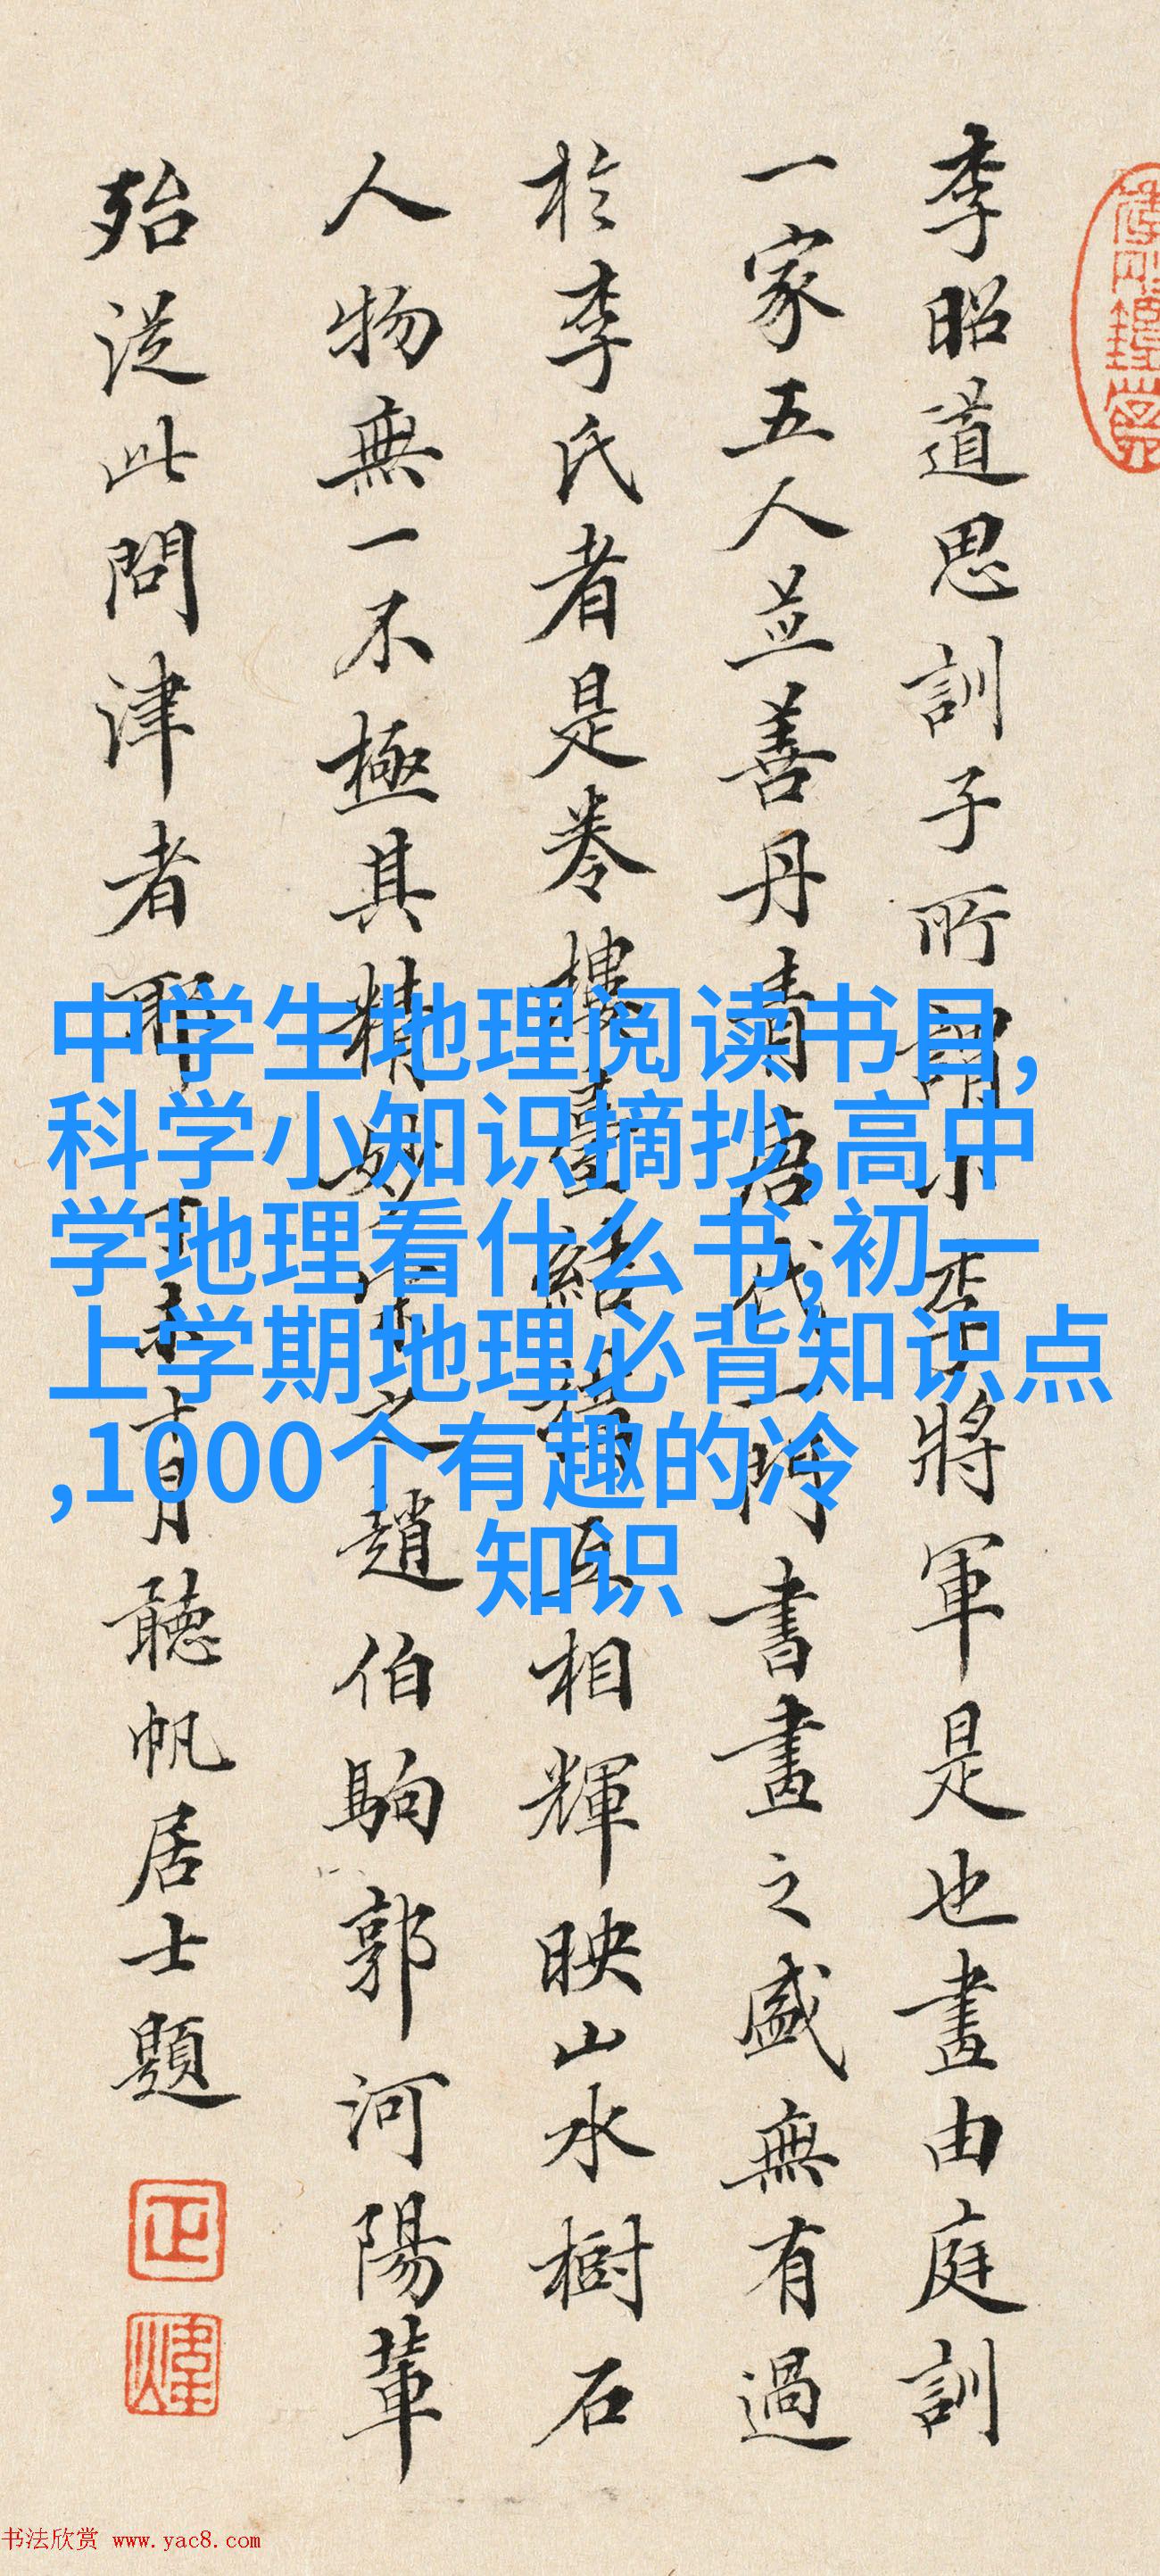 李昭道思訓子所謂小李將軍是也畫由庭訓
一家五人並善丹青唐代一門書畫之盛無有過
於李氏者是卷樓臺結構互相輝映山水樹石
人物無一不極其精妙宋之趙伯駒郭河陽輩
殆從此問津者耶
聽帆居士題
中学生地理阅读书目,
科学小知识摘抄,高中
学地理看什么书,初一
上学期地理必背知识点
,1000个有趣的冷
知识
书法欣赏 www.yac8.com